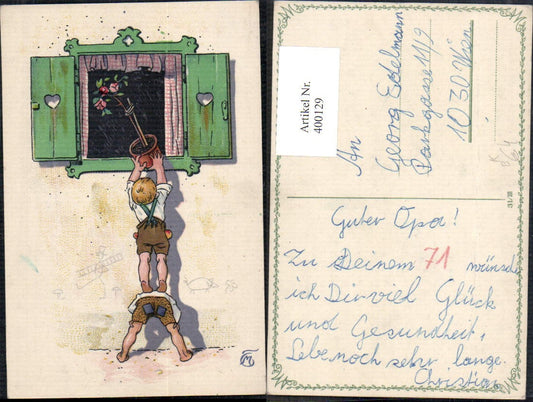 Artikel Nr.
400129
An
Georg Edelmann
Parkgasse 11/9
1030 Wien
31/III
Guter Opa!
Zu Deinem 71 wünsche
ich Dir viel Glück
und Gesundheit.
Lebe noch sehr lange
Christian